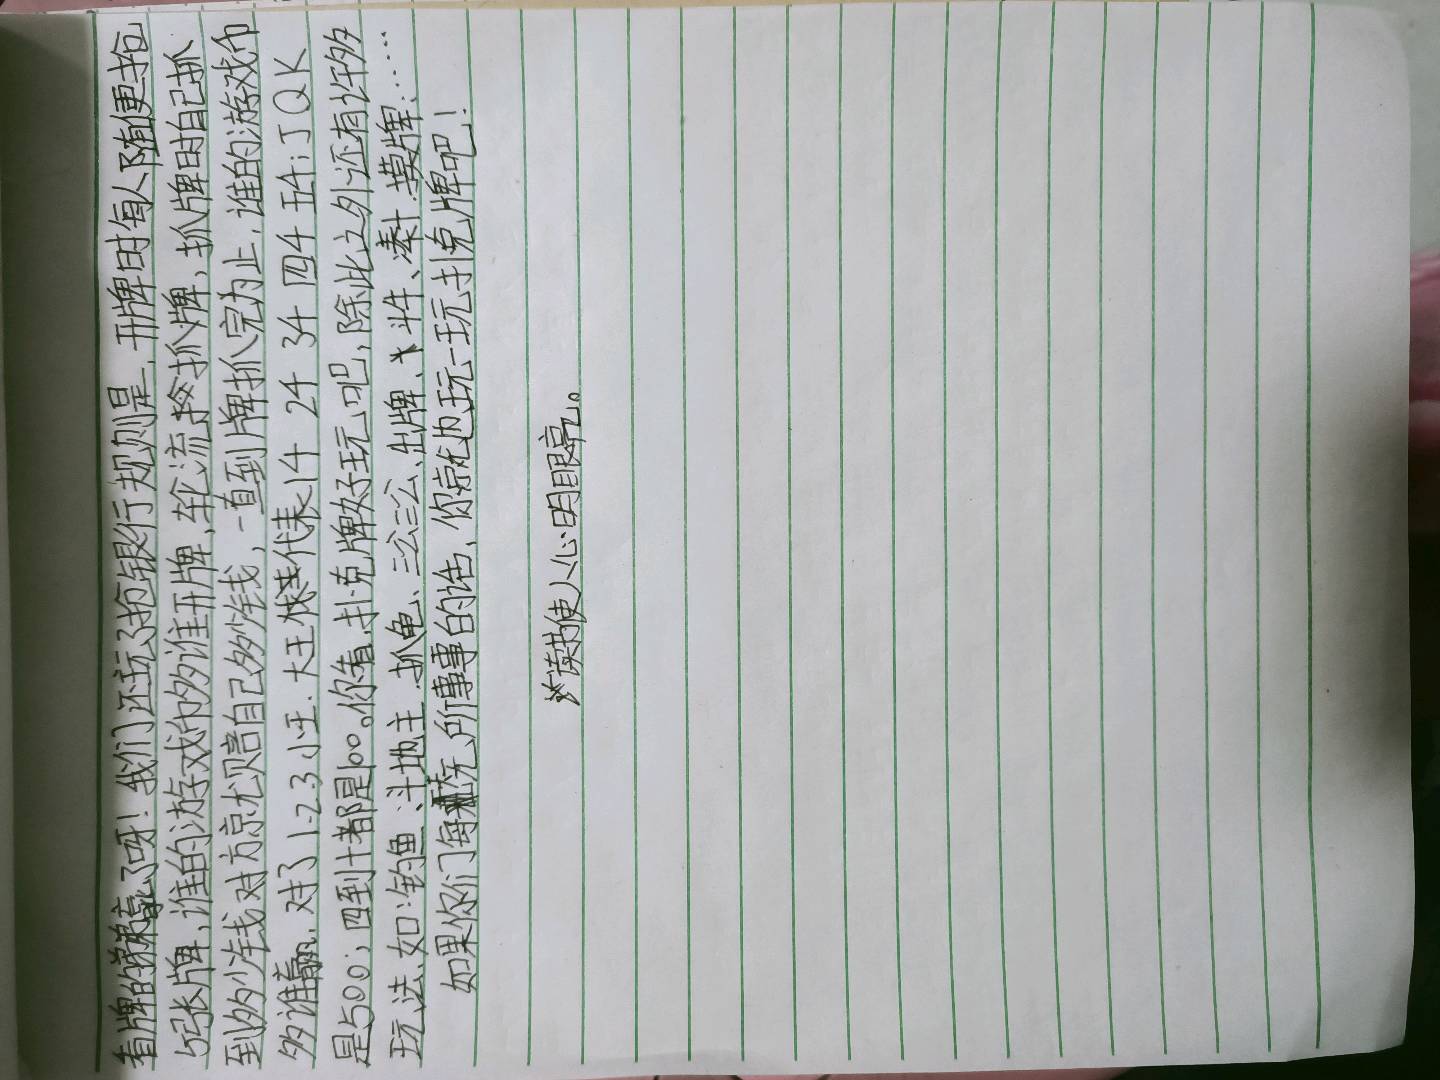 看牌的赢了呀！我们还玩了抢银行规则是，开牌时每人随便抢
5张牌，谁的游戏巾多谁开牌，轮流抓牌，抓牌时自己抓
到多少钱对方京尤赔自己多少钱，一直到牌抓完为止，谁的游戏巾
多谁赢，对了1.2.3小王.大王代表1千 2千 3千 四千 五千；J Q K
是500；四到十都是100。你看，扑克牌好玩吧，除此之外还有许多
玩法，如：钓鱼、斗地主、抓龟、三公三公、出牌、斗牛、凑十、莫牌……
如果你们每无所事事的话，你就也玩一玩扑克牌吧！
读书使人心明眼亮。